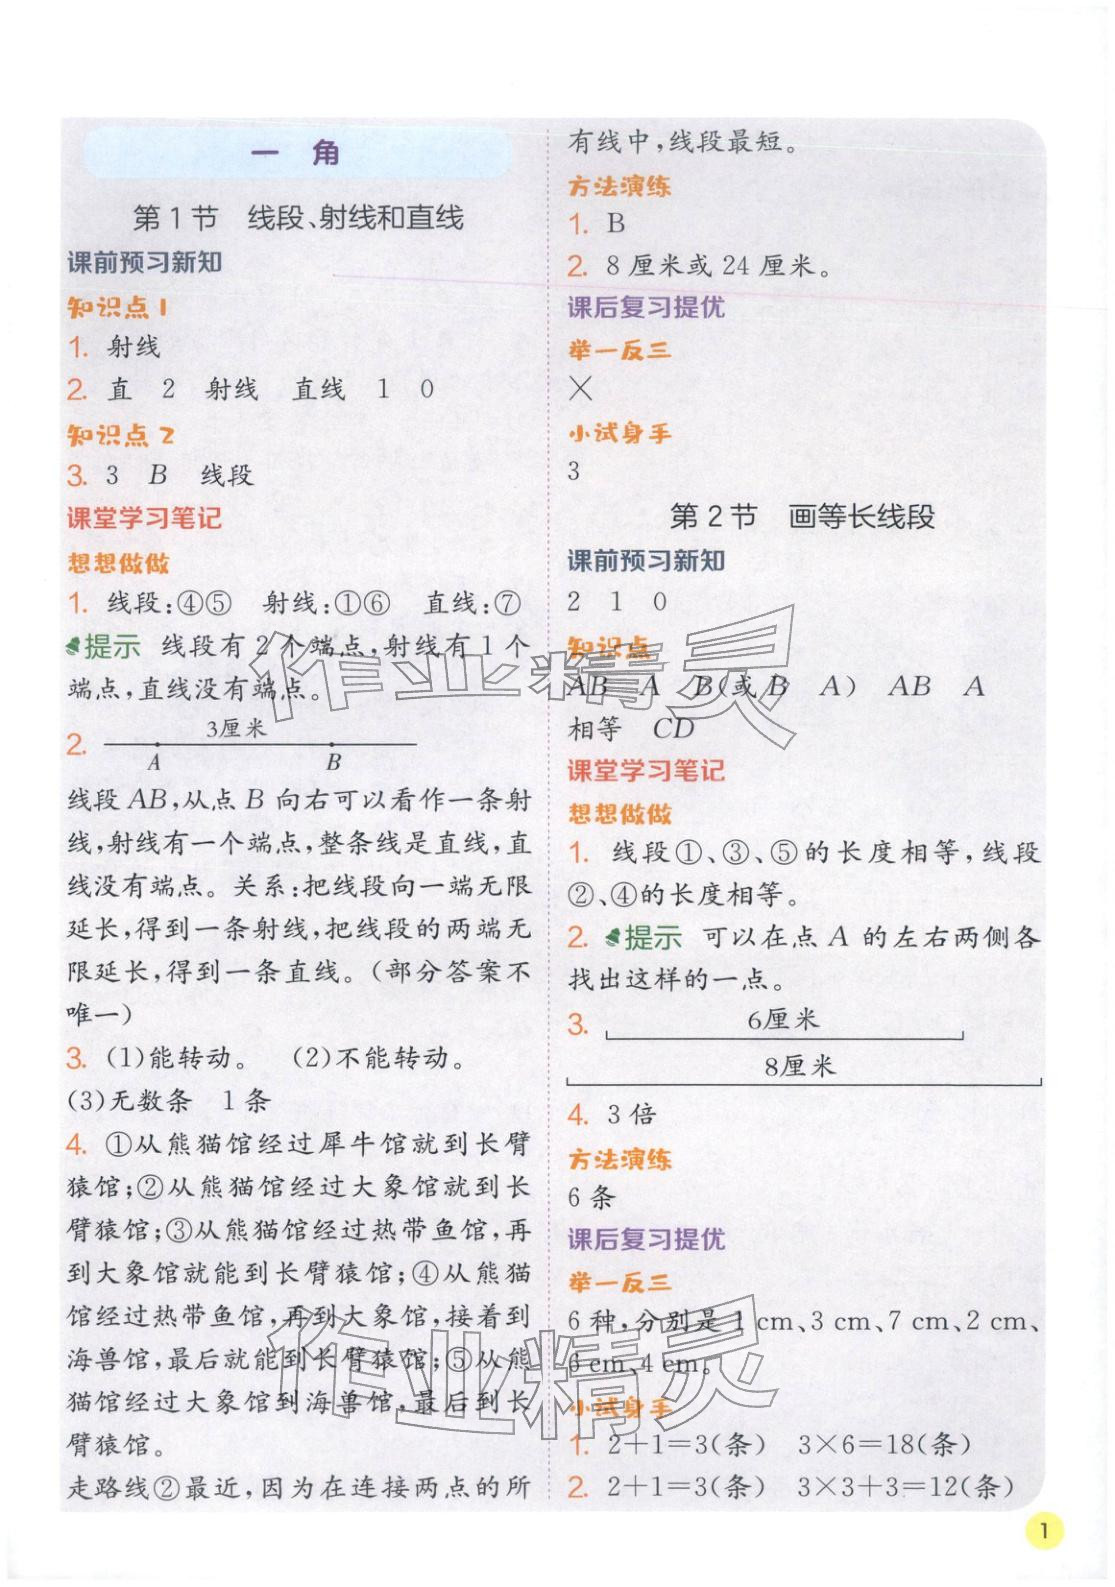 一 角
第1节 线段、射线和直线
课前预习新知
知识点1
1. 射线
2. 直 2 射线 直线 1 0
知识点2
3. 3 B 线段
课堂学习笔记
想想做做
1. 线段:④⑤ 射线:①⑥ 直线:⑦
提示 线段有2个端点,射线有1个
端点,直线没有端点。
2. 3厘米
A B
线段AB,从点B向右可以看作一条射
线,射线有一个端点,整条线是直线,直
线没有端点。关系:把线段向一端无限
延长,得到一条射线,把线段的两端无
限延长,得到一条直线。(部分答案不
唯一)
3. (1)能转动。 (2)不能转动。
(3)无数条 1条
4. ①从熊猫馆经过犀牛馆就到长臂
猿馆;②从熊猫馆经过大象馆就到长
臂猿馆;③从熊猫馆经过热带鱼馆,再
到大象馆就能到长臂猿馆;④从熊猫
馆经过热带鱼馆,再到大象馆,接着到
海兽馆,最后就能到长臂猿馆;⑤从熊
猫馆经过大象馆到海兽馆,最后到长
臂猿馆。
走路线②最近,因为在连接两点的所
有线中,线段最短。
方法演练
1. B
2. 8厘米或24厘米。
课后复习提优
举一反三
×
小试身手
3
第2节 画等长线段
课前预习新知
2 1 0
知识点
AB A B(或B A) AB A
相等 CD
课堂学习笔记
想想做做
1. 线段①、③、⑤的长度相等,线段
②、④的长度相等。
2. 提示 可以在点A的左右两侧各
找出这样的一点。
3. 6厘米
8厘米
4. 3倍
方法演练
6条
课后复习提优
举一反三
6种,分别是1 cm、3 cm、7 cm、2 cm、
6 cm、4 cm。
小试身手
1. 2+1=3(条) 3×6=18(条)
2. 2+1=3(条) 3×3+3=12(条)
1
作业精灵
作业精灵